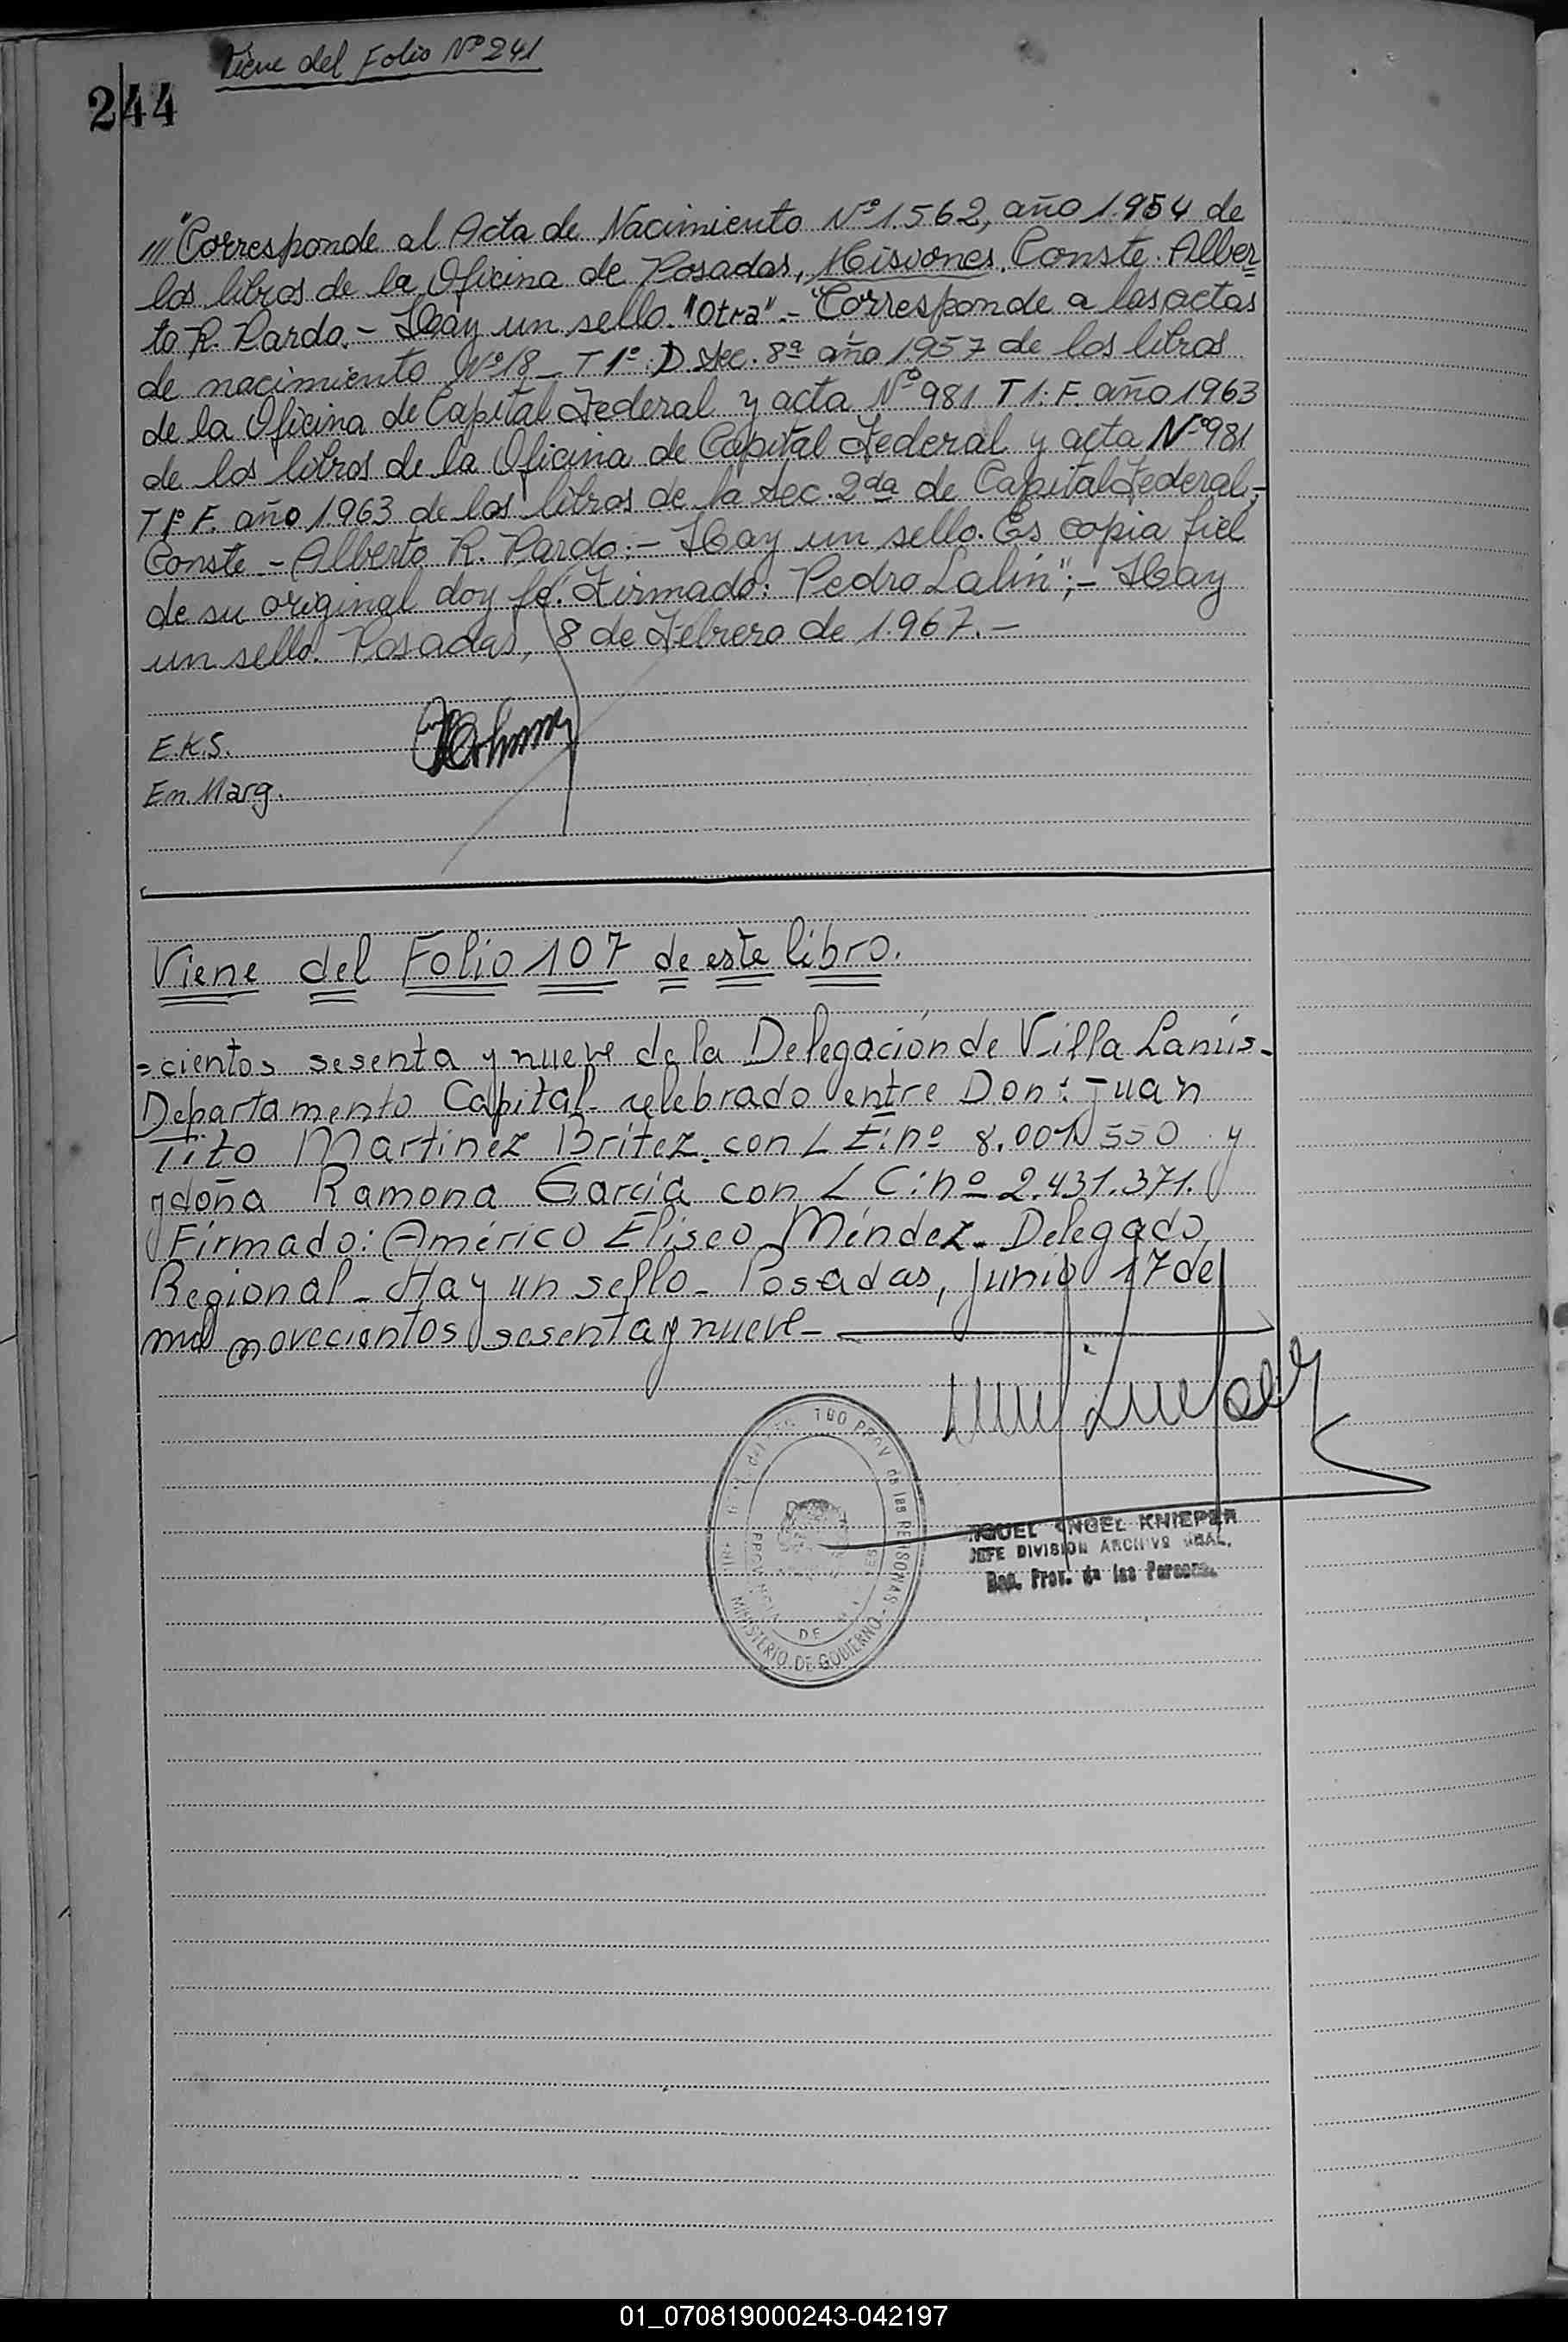 Viene del Folio Nº 241
244
///"Corresponde al Acta de Nacimiento Nº 1.562, año 1.954 de
los libros de la Oficina de Posadas, Misiones. Conste. Alber=
to R. Pardo.- Hay un sello. "Otra".- "Corresponde a las actas
de nacimiento Nº 18 - T 1º. D. Sec. 8ª año 1957 de los libros
de la Oficina de Capital Federal y acta Nº 981 T 1: F. año 1963
de los libros de la Oficina de Capital Federal y acta Nº 981
T 1º F. año 1.963 de los libros de la Sec. 2da de Capital Federal,-
Conste - Alberto R. Pardo:- Hay un sello. Es copia fiel
de su original doy fé. Firmado: Pedro Lalin";- Hay
un sello. Posadas, 8 de Febrero de 1.967.-
E.K.S.
En. Marg.
Viene del Folio 107 de este libro.
=cientos sesenta y nueve de la Delegación de Villa Lanús-
Departamento Capital- celebrado entre Don: Juan
Tito Martinez Britez. con L E: nº 8.001 550 y
y doña Ramona Garcia con L C: nº 2.431.371.
Firmado: Américo Eliseo Méndez- Delegado
Regional- Hay un sello- Posadas, junio 17 de
mil novecientos sesenta y nueve-
PROV de las PERSONAS - MINISTERIO DE GOBIERNO
DE
GUEL ANGEL KNIEPER
JEFE DIVISION ARCHIVO GRAL.
Reg. Prov. de las Personas.
01_070819000243-042197